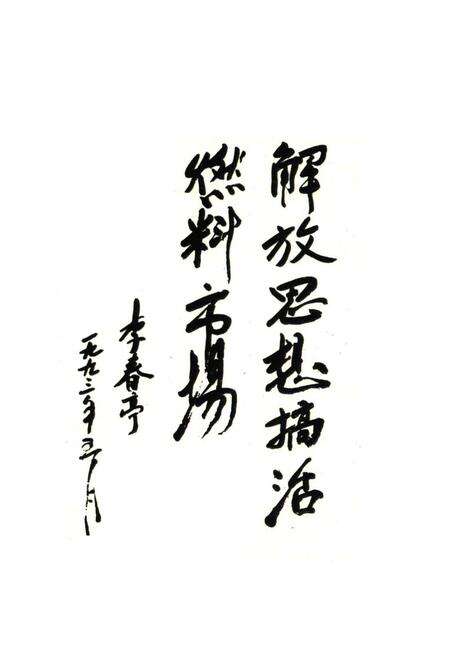 解放思想搞活
燃料市场
李春亭
一九九三年五月